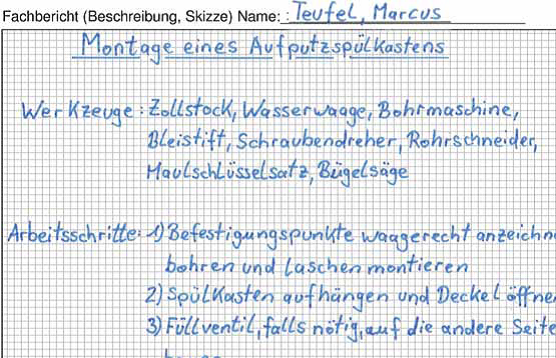 Fachbericht (Beschreibung, Skizze) Name: : Teufel, Marcus
Montage eines Aufputzspülkastens
Werkzeuge: Zollstock, Wasserwaage, Bohrmaschine,
Bleistift, Schraubendreher, Rohrschneider,
Maulschlüsselsatz, Bügelsäge
Arbeitsschritte: 1) Befestigungspunkte waagerecht anzeichn
bohren und Laschen montieren
2) Spülkasten aufhängen und Deckel öffne
3) Füllventil, falls nötig, auf die andere Seite